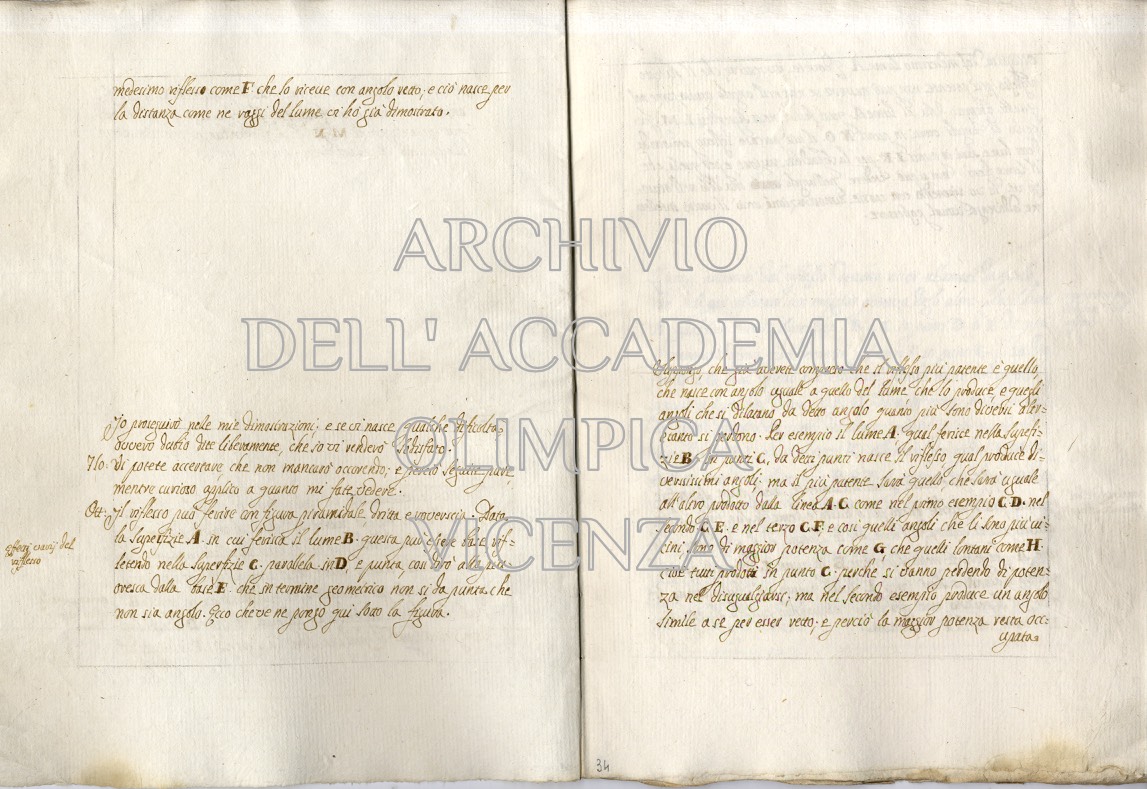 medesimo riflesso come F. che lo riceue con angolo retto; e ciò nasce per
la distanza come ne raggi del lume ui hò già dimostrato.
Jo proseguirò nele mie dimostrazioni; e se ui nasce qualche dificulta
ouuero dubio dite liberamente, che io ui renderò sodisfato.
di potete accertare che non mancurò occorendo; e perciò seguite pure
mentre curioso applico a quanto mi fate vedere.
Ott: Jl riflesso può ferire con figura piramidale dritta e rouerscia. Data
la superfizie A. in cui ferisca il lume B. questa può hauere base rif=
letendo nella superfizie C. parallela in D, e punta, cosi dirò alla
rouescia dalla base E. che in termine geometrico non si da punta che
non sia angolo. Ecco che ue ne pongo qui soto la figura.
Efetti uarij del
riflesso
Suppongo, che già haverete compreso che il riflesso più potente è quello,
che nasce con angolo uguale a quello del lume che lo produce, e quegli
angoli che si dilatano da detto angolo quanto più sono diuersi alter=
tanto si perdono. Per esempio il lume A. qual ferisce nella superfi=
zie B. in punti C, da detti punti nasce il riflesso qual produce di=
uersissimi angoli; ma il più potente sarà quelo che sarà uguale
all'altro prodotto dalla linea A.C. come nel primo esempio C.D. nel
secondo C.E. e nel terzo C.F. e cosi quelli angoli che li sono più ui=
cini, sono di maggior potenza come G. che quelli lontani come H.
cioè tutti prodoti in punto C. perche si uanno perdendo di poten=
za nel disaguagliarsi; ma nel secondo esempio produce un angolo
simile a sè per esser retto; e perciò la maggior potenza resta occ=
upata
34
ARCHIVIO
DELL' ACCADEMIA
OLIMPICA
VICENZA